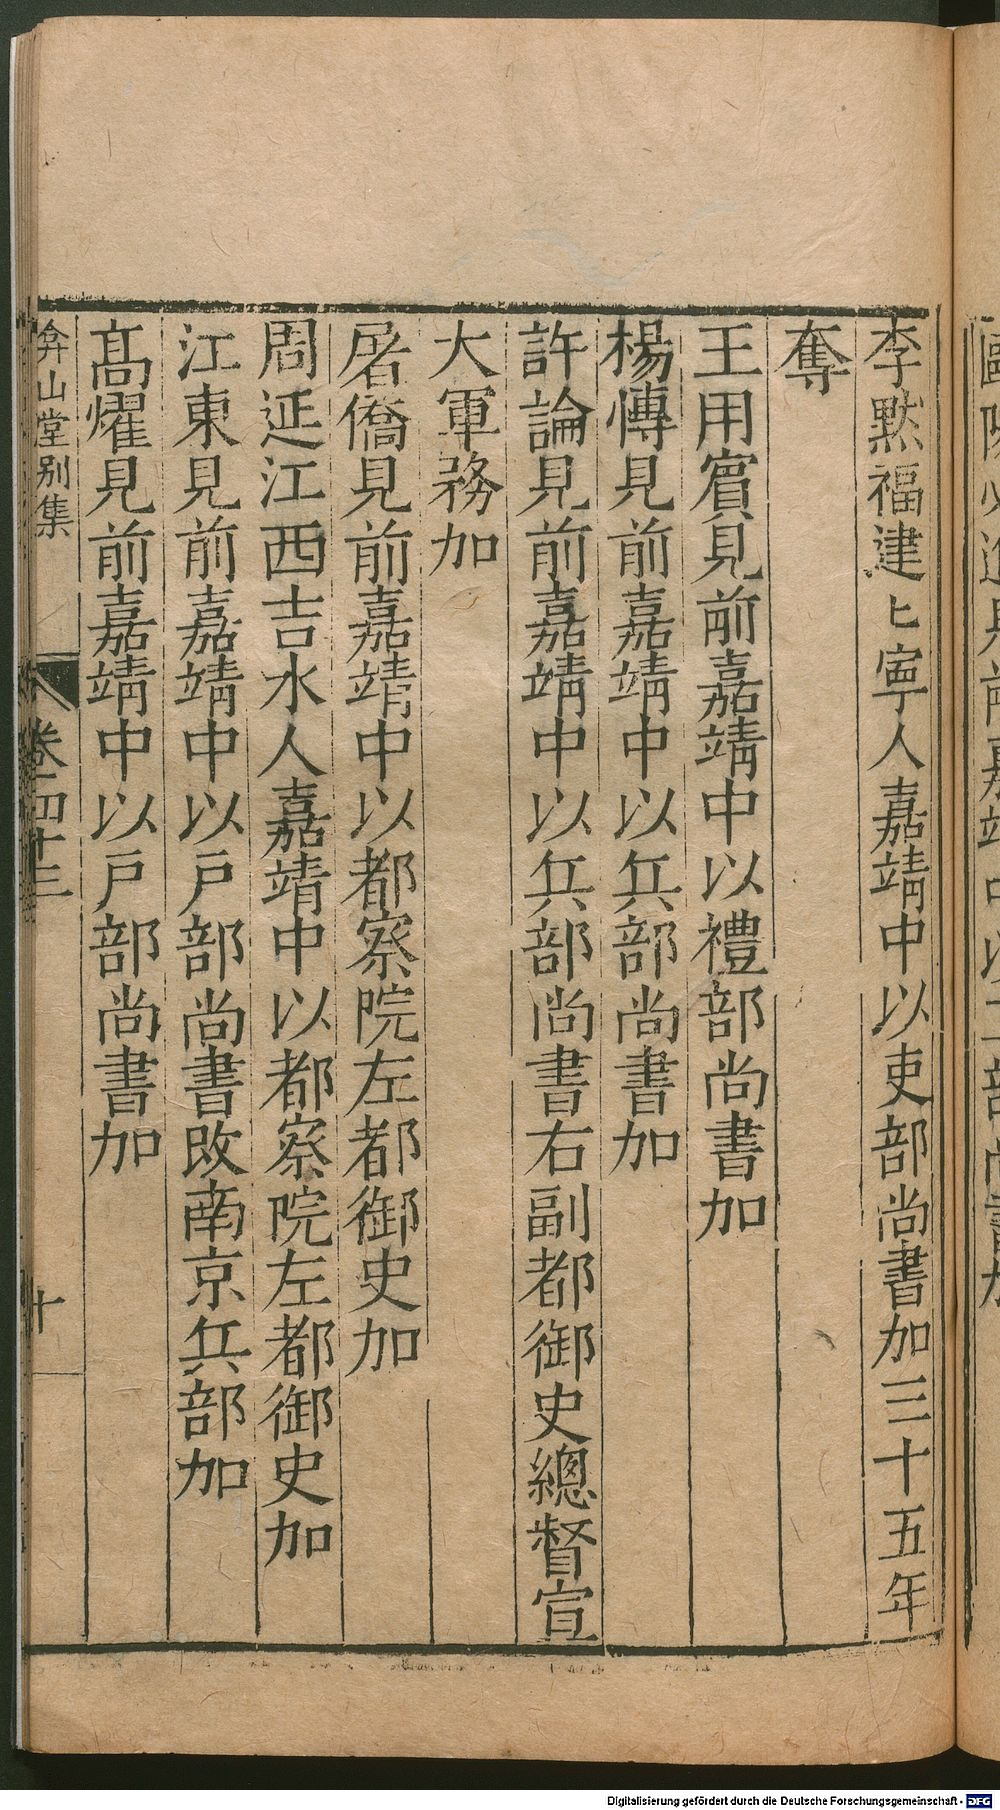 李默福建七寧人嘉靖中以吏部尚書加三十五年
奪
王用賓見前嘉靖中以禮部尚書加
楊愽見前嘉靖中以兵部尚書加
許論見前嘉靖中以兵部尚書右副都御史總督宣
大軍務加
屠僑見前嘉靖中以都察院左都御史加
周延江西吉水人嘉靖中以都察院左都御史加
江東見前嘉靖中以戶部尚書改南京兵部加
髙燿見前嘉靖中以戶部尚書加
弇山堂别集 卷之四十三 十
Digitalisierung gefördert durch die Deutsche Forschungsgemeinschaft - DFG